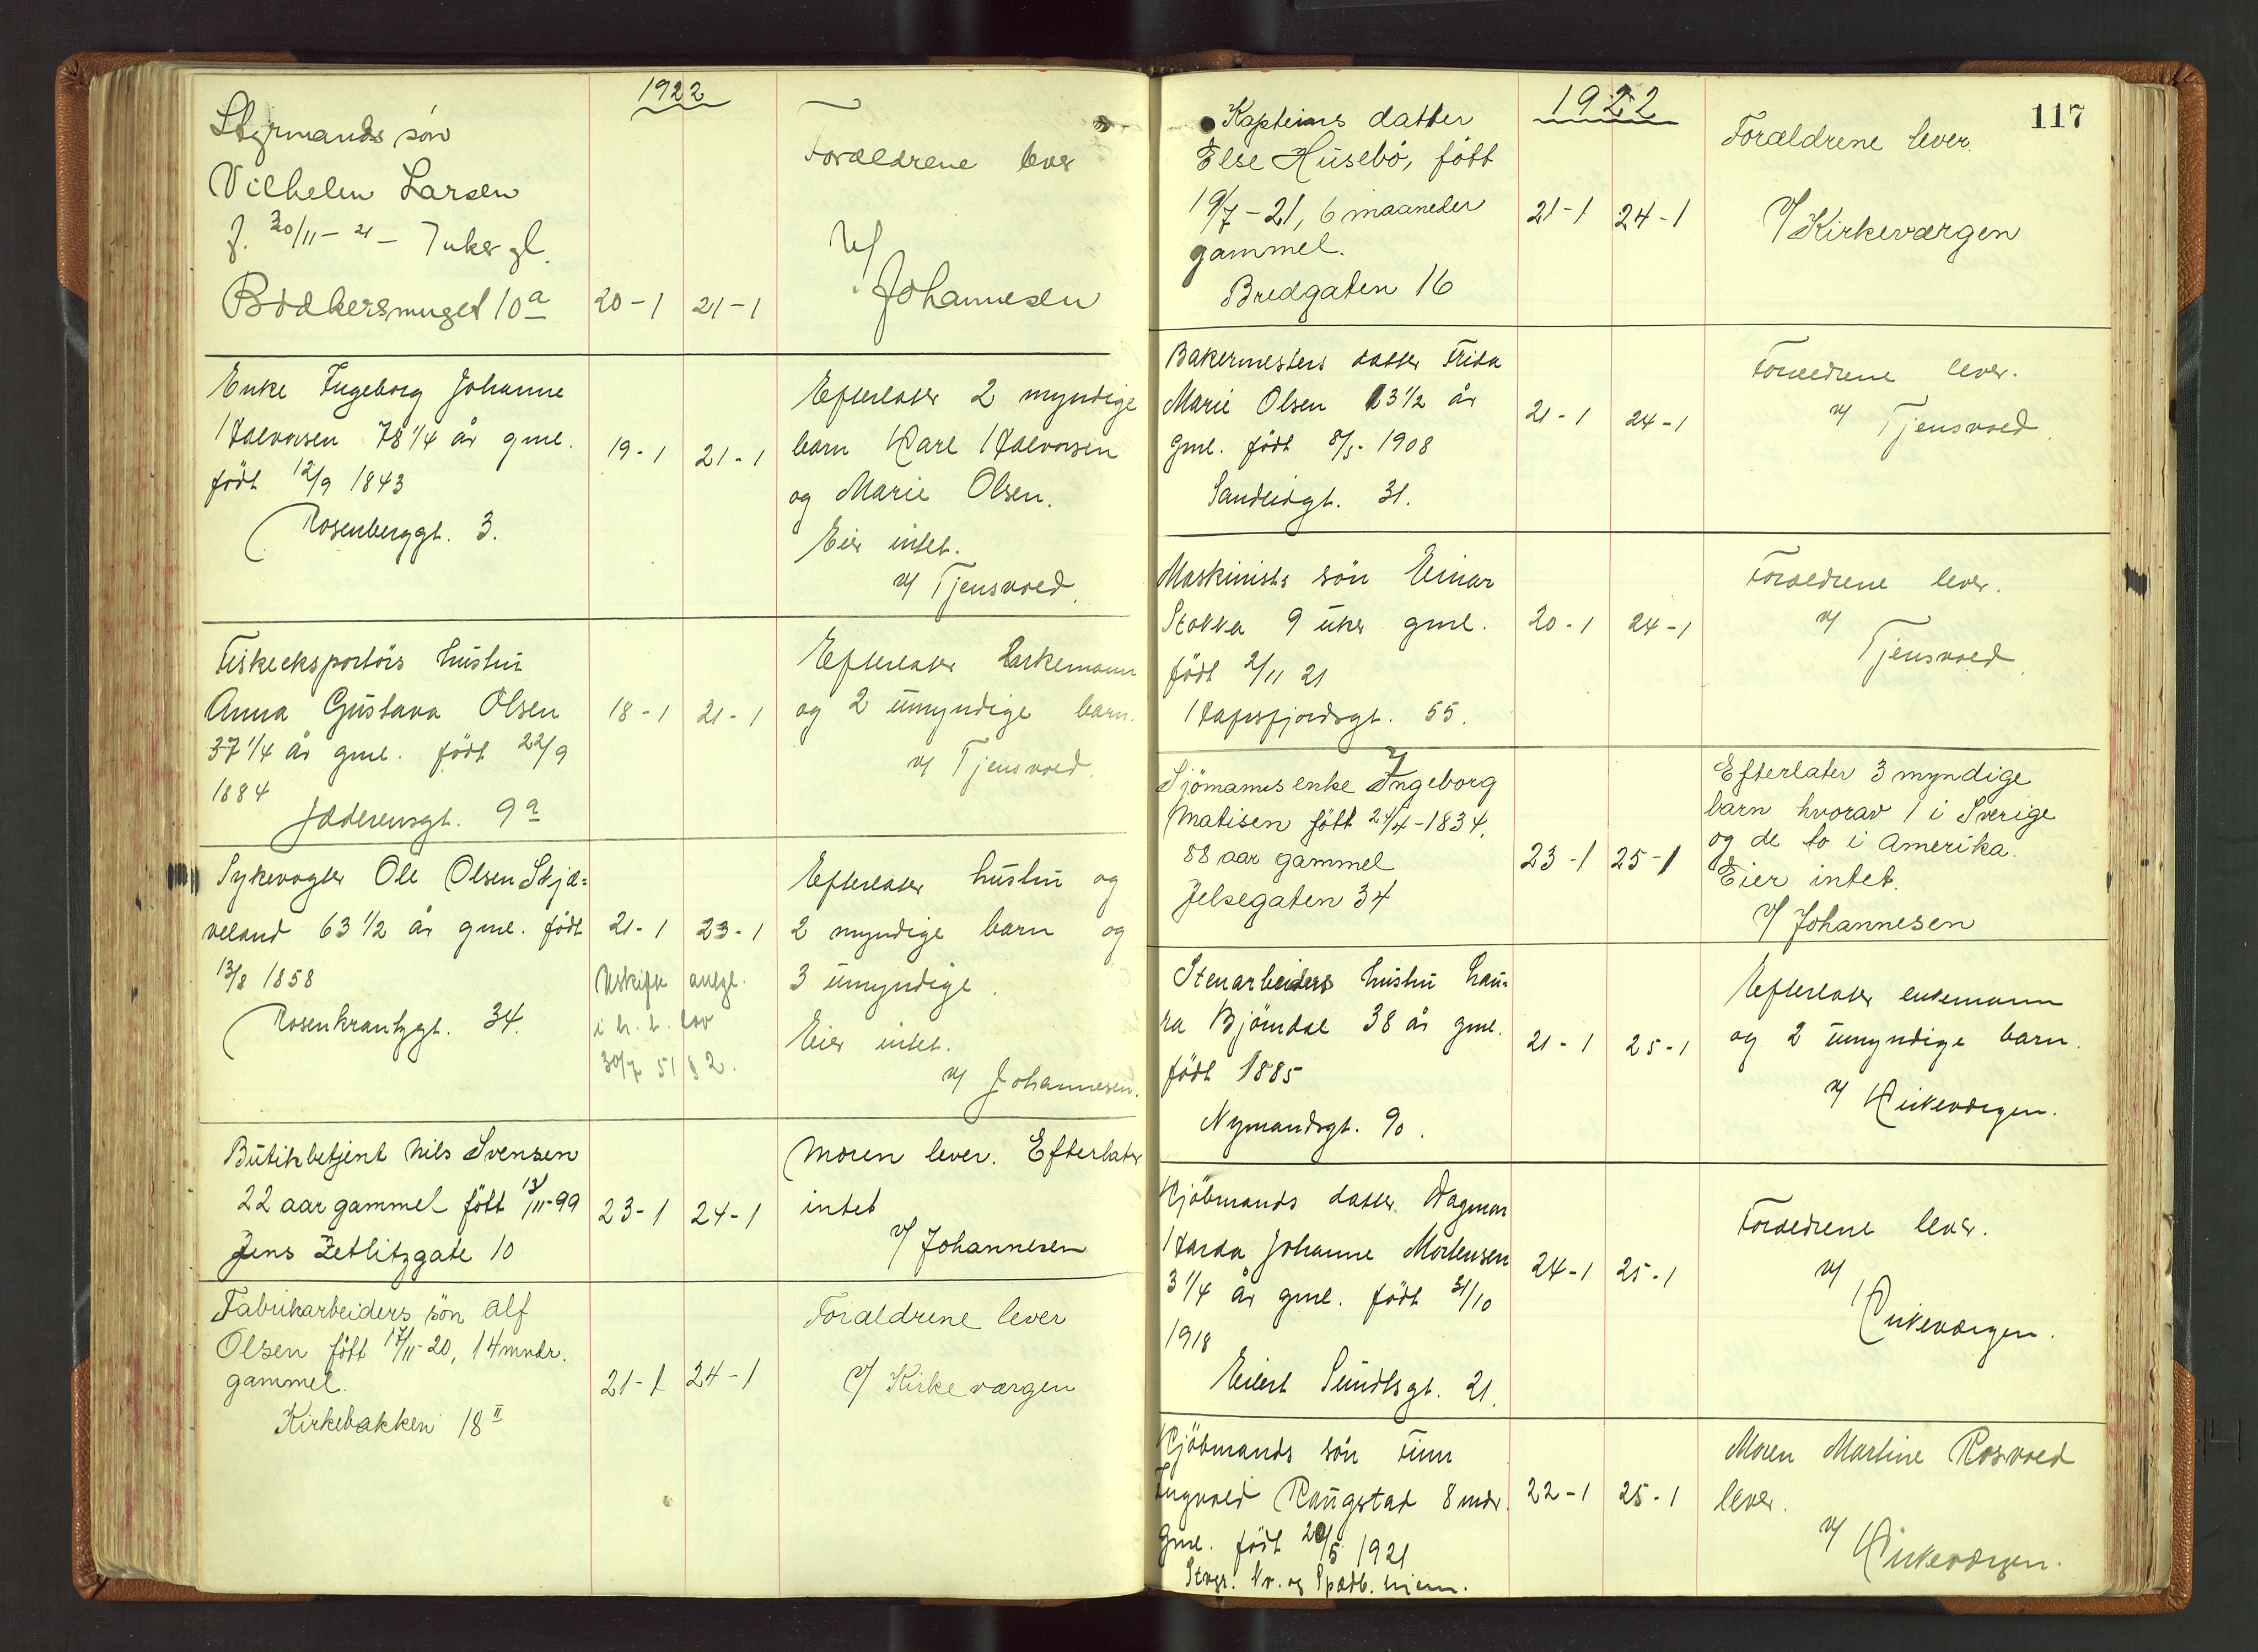 1922
Styrmands søn
Vilhelm Larsen
f. 30/11 - 21 - 7 uker gl.
Bødkersmuget 10a
20-1
21-1
Forældrene lever
v/
Johannesen
Enke Ingeborg Johanne
Halvorsen 78 1/4 år gml.
født 12/9 1843
Rosenberggt. 3.
19-1
21-1
Efterlater 2 myndige
barn Karl Halvorsen
og Marie Olsen.
Eier intet.
v/ Tjensvold.
Fiskeeksportörs hustru
Anna Gustava Olsen
37 1/4 år gml. født 22/9
1884
Jæderensgt. 9a
18-1
21-1
Efterlater Enkemann
og 2 umyndige barn.
v/ Tjensvold.
Sykevogter Ole Olsen Skjæ-
veland 63 1/2 år gml. født
13/8 1858
Rosenkrantzgt. 34.
21-1
23-1
Uskifte
i h. t. lov
30/7 51 § 2.
Efterlater hustru og
2 myndige barn og
3 umyndige.
Eier intet.
v/ Johannesen.
Butikbetjent Nils Svensen
22 aar gammel født 13/11-99
Jens Zetlitzgate 10
23-1
24-1
Moren lever. Efterlater
intet
v/ Johannesen
Fabrikarbeiders sön Alf
Olsen født 17/11-20, 14 mndr.
gammel.
Kirkebakken 18 II
21-1
24-1
Forældrene lever
v/ Kirkeværgen
117
1922
Kapteins datter
Else Husebö, født
19/7-21, 6 maaneder
gammel.
Bredgaten 16
21-1
24-1
Forældrene lever.
v/ Kirkeværgen
Bakermesters datter Frida
Marie Olsen 13 1/2 år
gml. født 8/5-1908
Sandeidgt. 31.
21-1
24-1
Forældrene lever.
v/ Tjensvold.
Maskinists sön Einar
Stokka 9 uker gml.
født 2/11 21
Hafrsfjordsgt. 55.
20-1
24-1
Forældrene lever.
v/
Tjensvold
Sjömanns enke Ingeborg
Matisen født 24/4-1834,
88 aar gammel
Jelsegaten 34
23-1
25-1
Efterlater 3 myndige
barn hvorav 1 i Sverige
og de to i Amerika.
Eier intet.
v/ Johannesen
Stenarbeiders hustru Lau-
ra Bjömdal 38 år gml.
født 1885
Nymandsgt. 90.
21-1
25-1
Efterlater enkemann
og 2 umyndige barn.
v/ Kirkeværgen.
Kjöbmands datter Dagmar
Harda Johanne Mortensen
3 1/4 år gml. født 31/10
1918
Eilert Sundtsgt. 21.
24-1
25-1
Forældrene lever.
v/
Kirkeværgen.
Kjöbmands sön Finn
Ingvald Raugstad 8 mdr.
gml. født 20/5 1921
Stvgr. Kv. og Spædb. hjem.
22-1
25-1
Moren Martine Rosvold
lever.
v/ Kirkeværgen.